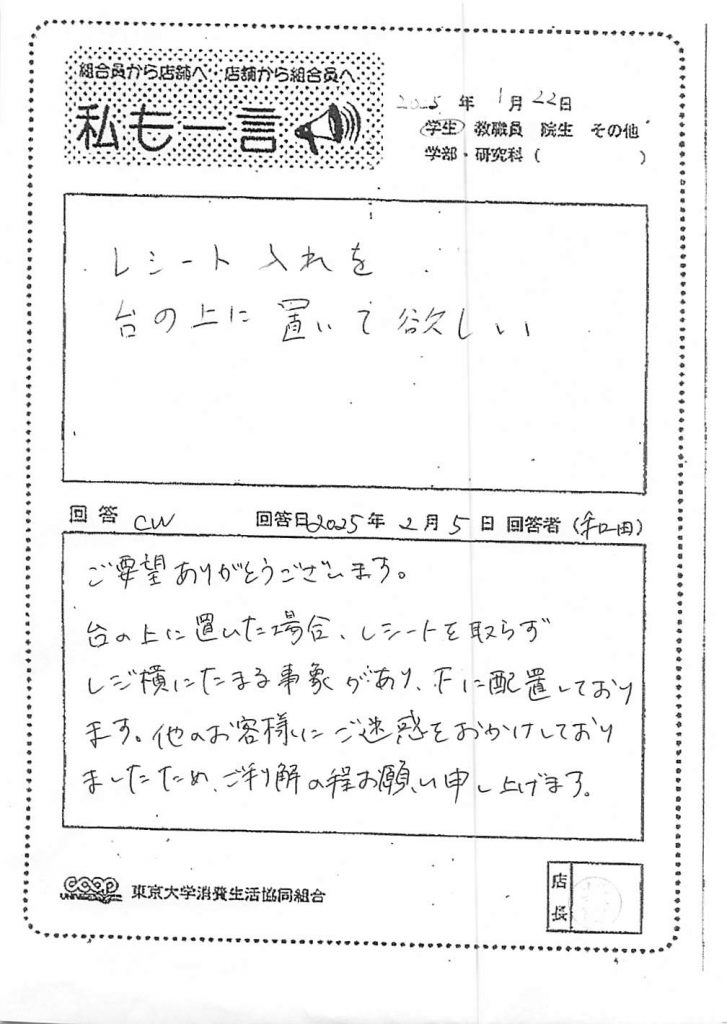 組合員から店舗へ 店舗から組合員へ
私も一言
2025年1月22日
学生 教職員 院生 その他
学部・研究科( )
レシート入れを
台の上に置いて欲しい
回答 CW 回答日2025年2月5日 回答者(和田)
ご要望ありがとうございます。
台の上に置いた場合、レシートを取らず
レジ横にたまる事象があり、下に配置しており
ます。他のお客様にご迷惑をおかけしており
ましたため、ご利解の程お願い申し上げます。
coop
UNIVERSITY
東京大学消費生活協同組合
店長